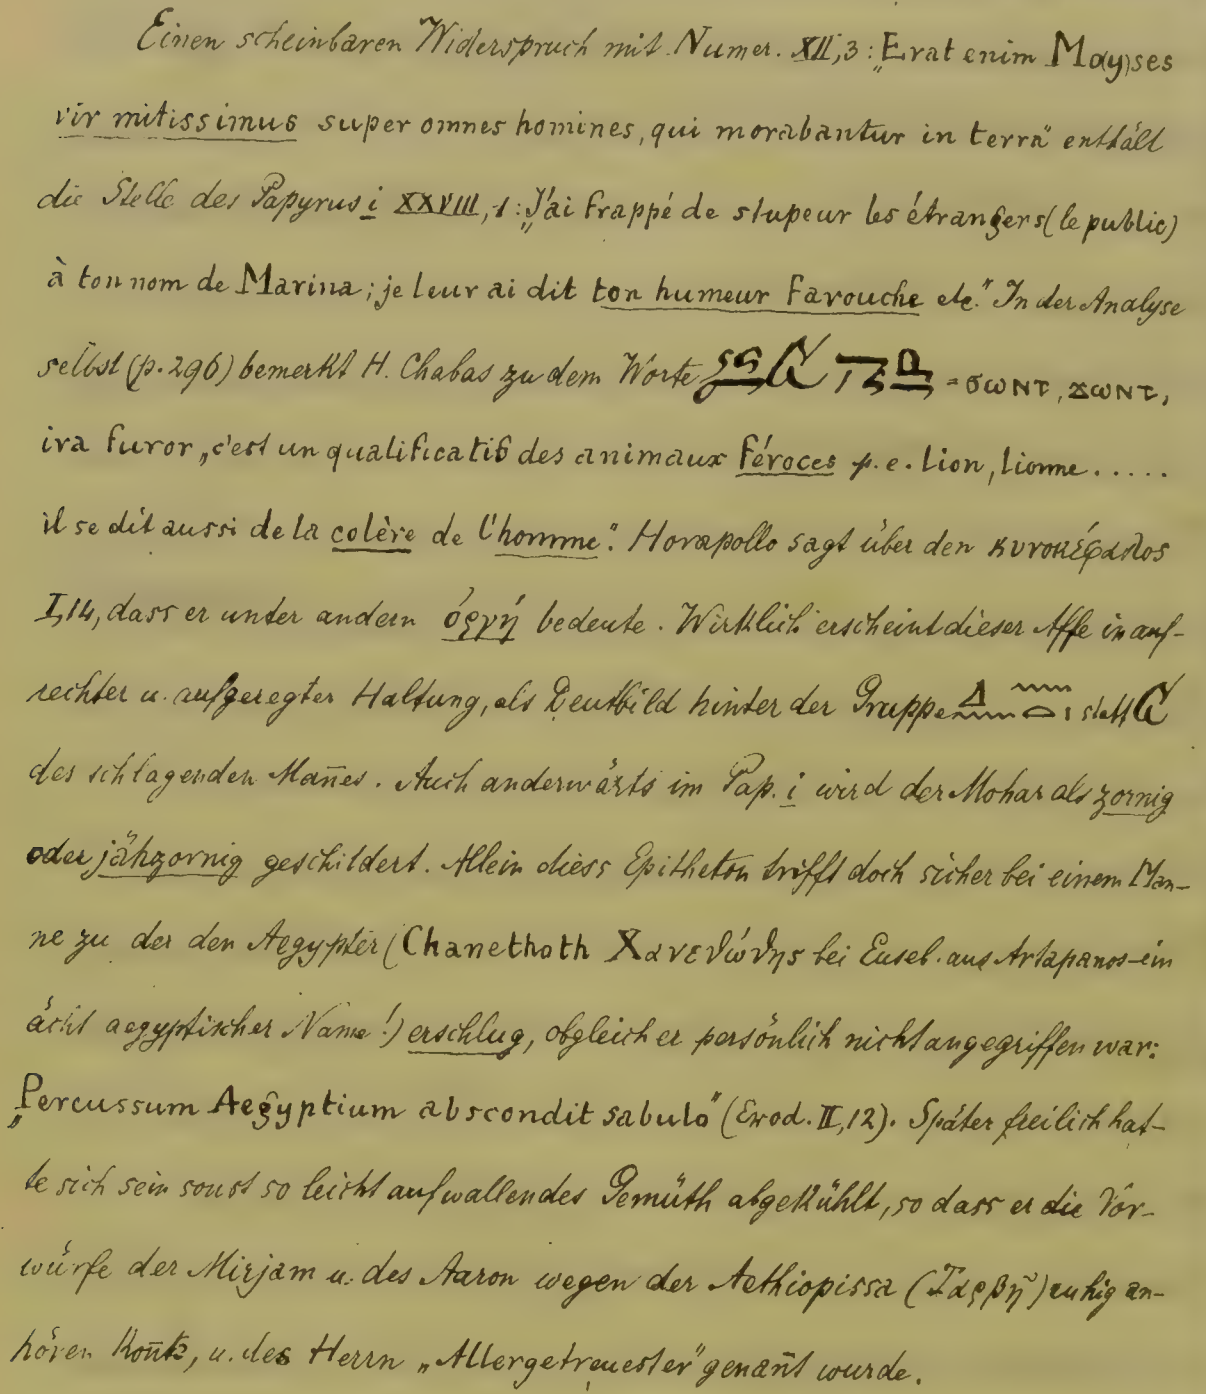 Einen scheinbaren Widerspruch mit Numer. XII,3: „Erat enim Mo(y)ses
vir mitissimus super omnes homines, qui morabantur in terra“ enthält
die Stelle des Papyrus i XXVIII, 1: „J'ai frappé de stupeur les étrangers (le public)
à ton nom de Marina; je leur ai dit ton humeur farouche etc.“ In der Analyse
selbst (p. 296) bemerkt H. Chabas zu dem Worte = ϭωντ, ϫωντ,
ira furor „c'est un qualificatif des animaux féroces p. e. lion, lionne.....
il se dit aussi de la colère de l'homme“. Horapollo sagt über den κυνοκέφαλος
I,14, dass er unter andern ὀργή bedeute. Wirklich erscheint dieser Affe in auf-
rechter u. aufgeregter Haltung, als Deutbild hinter der Gruppe statt
des schlagenden Man̄es. Auch anderwärts im Pap. i wird der Mohar als zornig
oder jähzornig geschildert. Allein diess Epitheton trifft doch sicher bei einem Man-
ne zu der den Aegypter (Chanethoth Χανεθώθης bei Euseb. aus Artapanos - ein
ächt aegyptischer Name!) erschlug, obgleich er persönlich nicht angegriffen war:
„Percussum Aegyptium abscondit sabulo“ (Exod. II,12). Später freilich hat-
te sich sein sonst so leicht aufwallendes Gemüth abgekühlt, so dass er die Vor-
würfe der Mirjam u. des Aaron wegen der Aethiopissa (Θαρβη) ruhig an-
hören kon̄te, u. des Herrn „Allergetreuester“ genan̄t wurde.